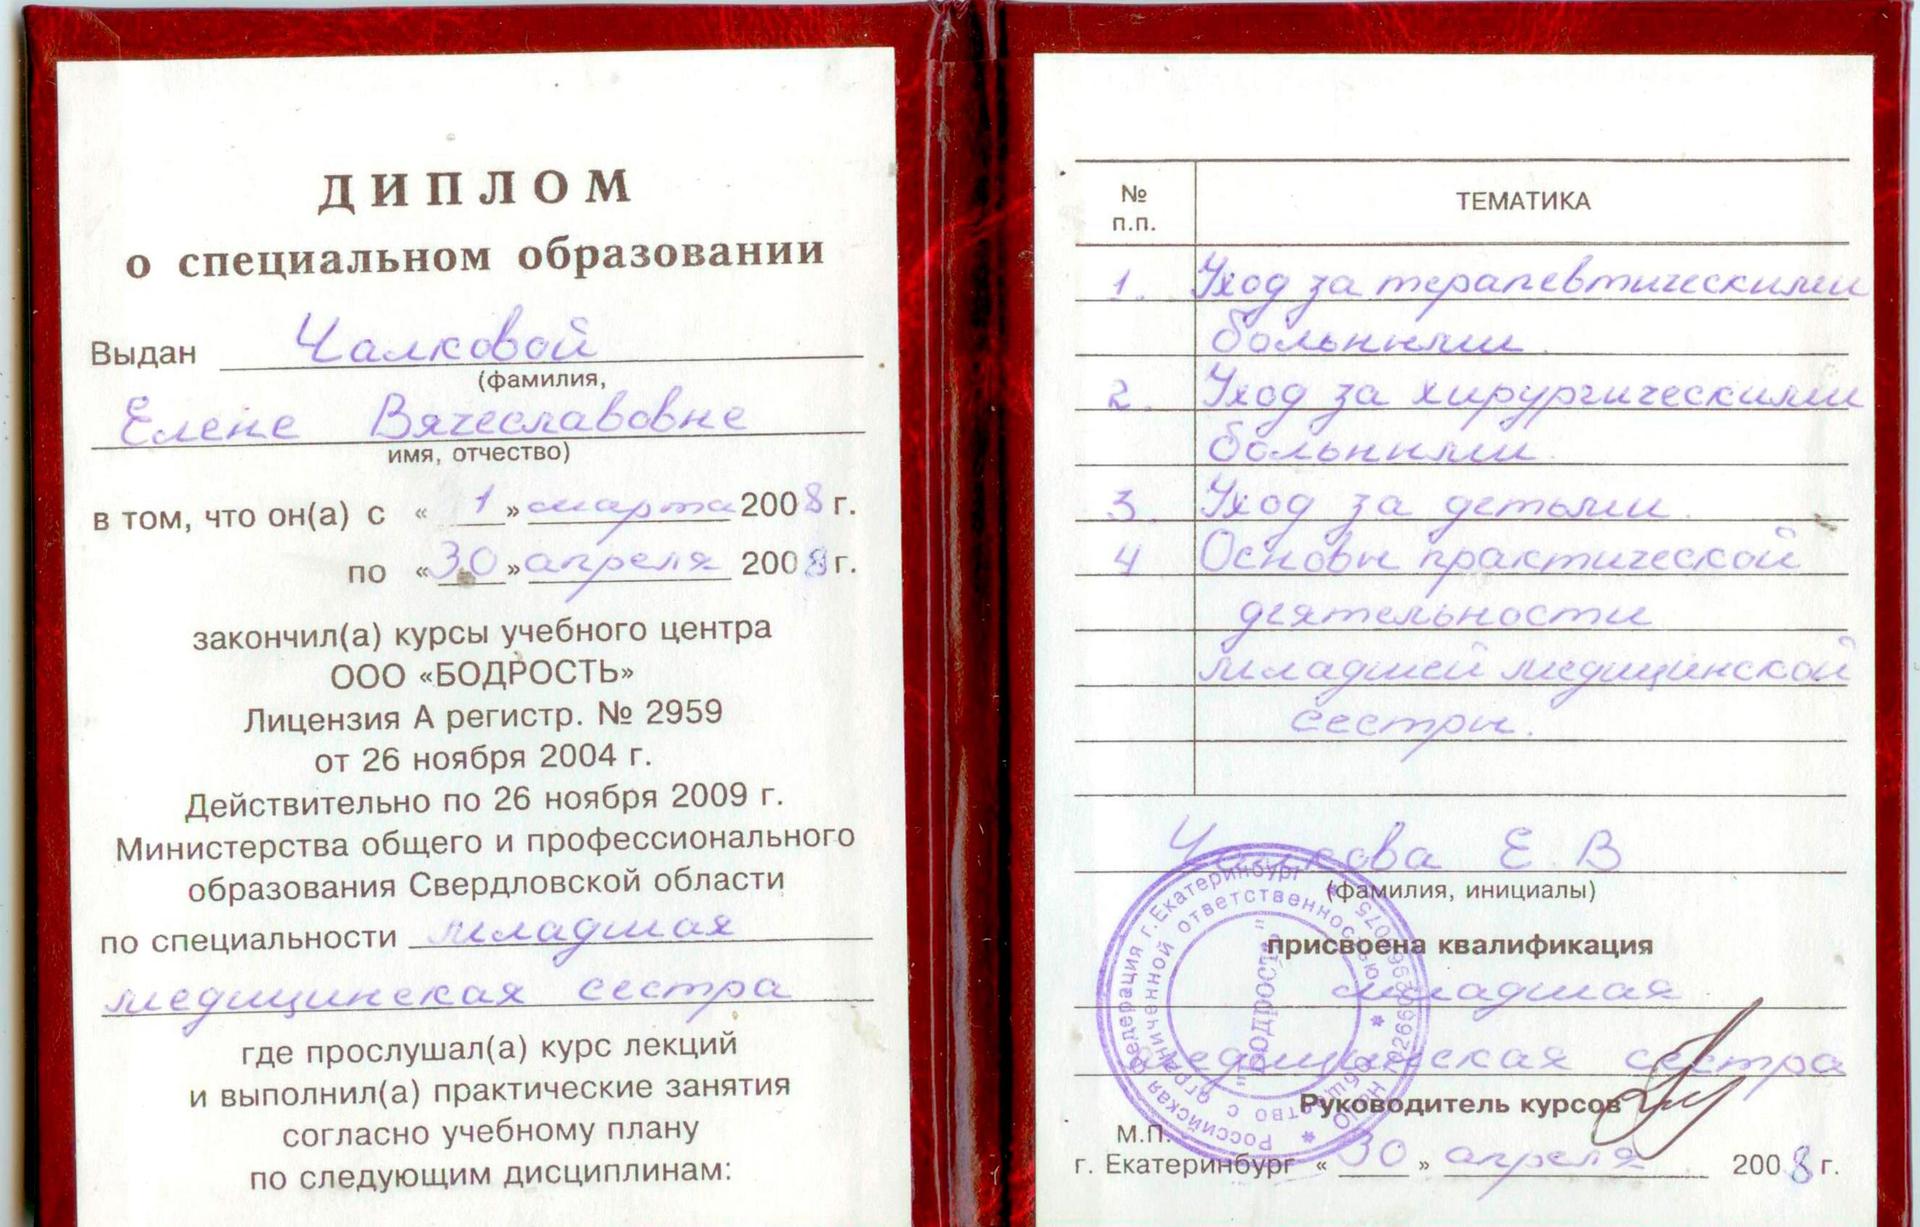 ДИПЛОМ
о специальном образовании
Выдан Чалковой
(фамилия,
Елене Вячеславовне
имя, отчество)
в том, что он(а) с « 1 » марта 2008 г.
по « 30 » апреля 2008 г.
закончил(а) курсы учебного центра
ООО «БОДРОСТЬ»
Лицензия А регистр. № 2959
от 26 ноября 2004 г.
Действительно по 26 ноября 2009 г.
Министерства общего и профессионального
образования Свердловской области
по специальности младшая
медицинская сестра
где прослушал(а) курс лекций
и выполнил(а) практические занятия
согласно учебному плану
по следующим дисциплинам:
№ п.п. ТЕМАТИКА
1. Уход за терапевтическими
больными.
2. Уход за хирургическими
больными.
3. Уход за детьми.
4 Основы практической
деятельности
младшей медицинской
сестры.
Чалкова Е. В
(фамилия, инициалы)
присвоена квалификация
младшая
медицинская сестра
Руководитель курсов
М.П.
г. Екатеринбург « 30 » апреля 2008 г.
Российская Федерация г.Екатеринбург
Общество с ограниченной ответственностью
"Бодрость"